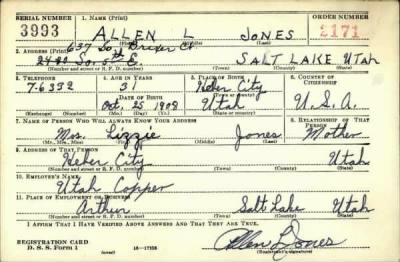 SERIAL NUMBER 1. NAME (Print) ORDER NUMBER
3993 ALLEN L JONES 2171
(First) (Middle) (Last)
637 So.
2. ADDRESS (Print)
2480 So. 5th E. SALT LAKE UTAH
(Number and street or R. F. D. number) (Town) (County) (State)
3. TELEPHONE 4. AGE IN YEARS 5. PLACE OF BIRTH 6. COUNTRY OF CITIZENSHIP
7-6332 31 Heber City
DATE OF BIRTH (Town or county)
Oct. 25 1908 Utah U.S.A.
(Exchange) (Number) (Mo.) (Day) (Yr.) (State or country)
7. NAME OF PERSON WHO WILL ALWAYS KNOW YOUR ADDRESS 8. RELATIONSHIP OF THAT PERSON
Mrs. Lizzie Jones Mother
(Mr., Mrs., Miss) (First) (Middle) (Last)
9. ADDRESS OF THAT PERSON
Heber City Utah
(Number and street or R. F. D. number) (Town) (County) (State)
10. EMPLOYER'S NAME
Utah Copper
11. PLACE OF EMPLOYMENT OR BUSINESS
Arthur Salt Lake Utah
(Number and street or R. F. D. number) (Town) (County) (State)
I AFFIRM THAT I HAVE VERIFIED ABOVE ANSWERS AND THAT THEY ARE TRUE.
REGISTRATION CARD
D. S. S. Form 1 16—17105 Allen L Jones
(Registrant's signature)